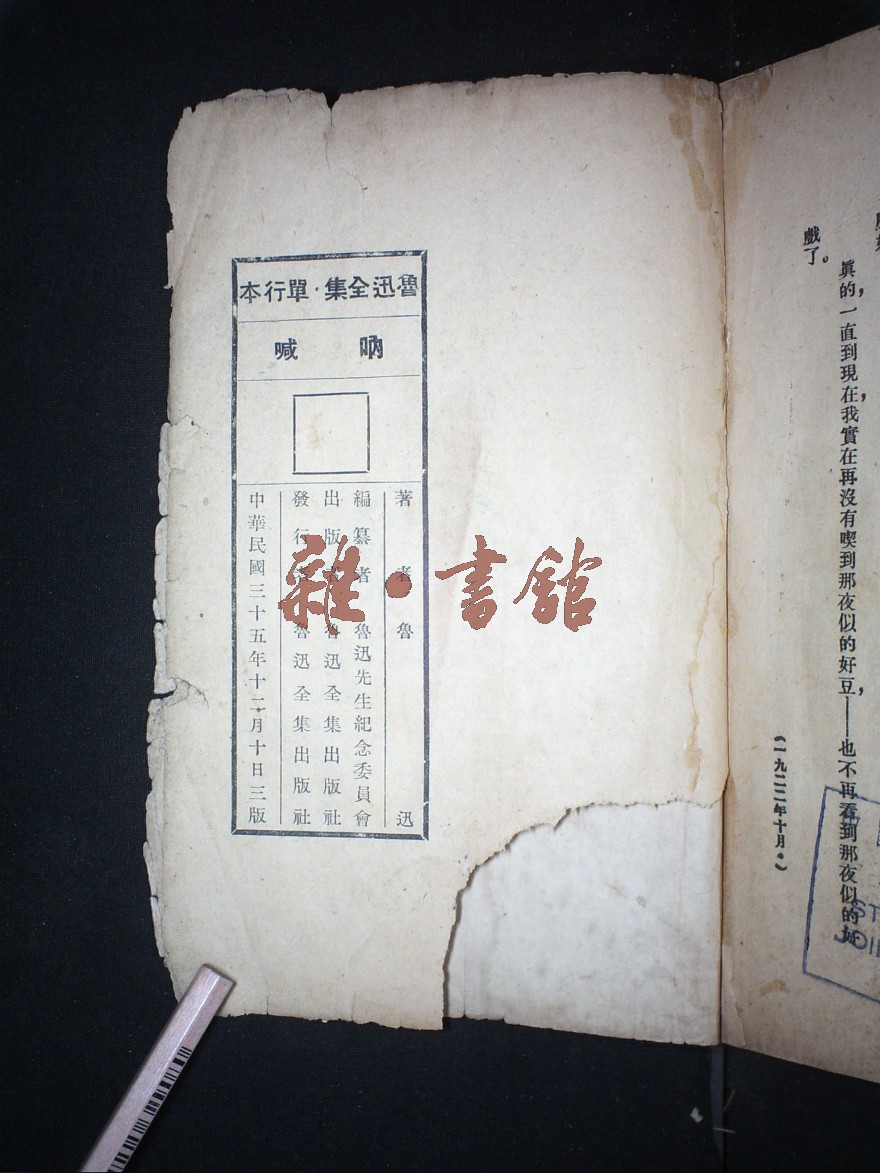 眞的，一直到現在，我實在再沒有喫到那夜似的好豆，——也不再看到那夜似的好
戲了。
（一九二二年十月。）
魯迅全集·單行本
吶喊
著者魯迅
編纂者魯迅先生紀念委員會
出版者魯迅全集出版社
發行者魯迅全集出版社
中華民國三十五年十二月十日三版
雜·書館